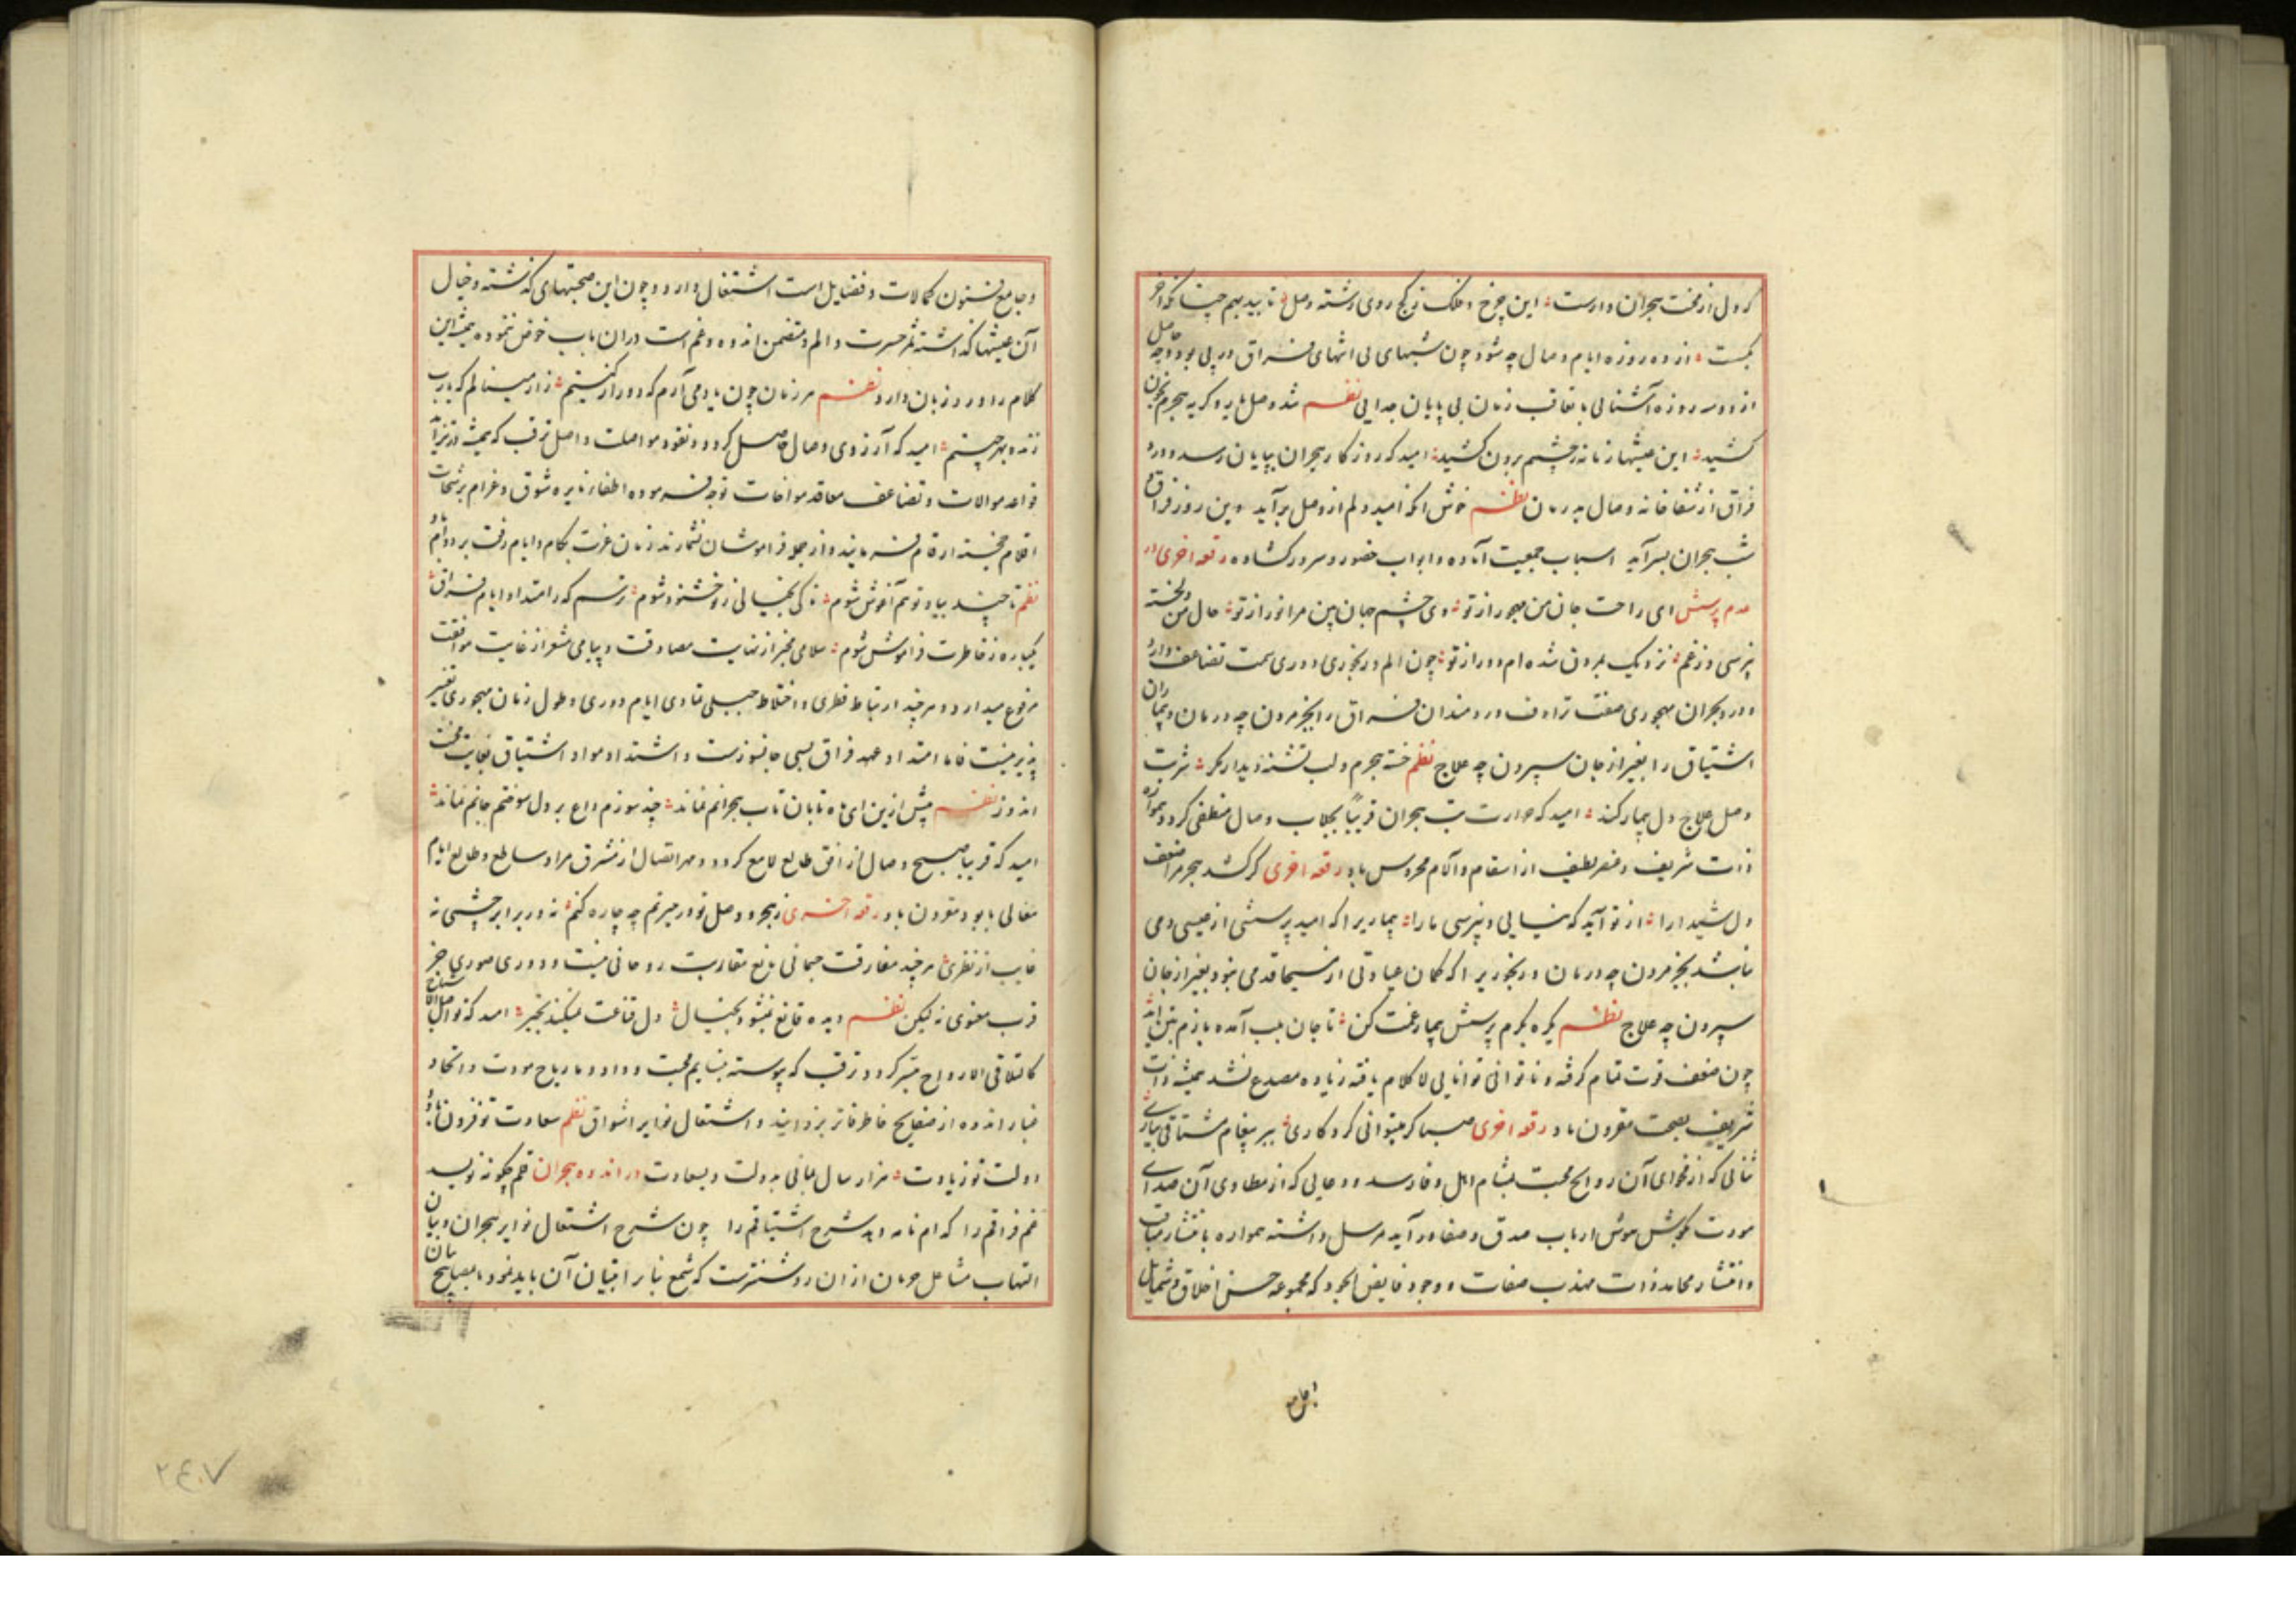 که دل از محنت هجران وارست این چرخ و فلک ز کج روی رشته وصل تابید بهم چنانکه آخر
بگسست از ده روزه ایام وصال چه شود چون شبهای بی انتهای فراق در پی بود و چه حاصل
از دو سه روزه آشنایی با تعاقب زمان بی پایان جدایی نظم شد وصل یار و کریه هجرم بخون
کشید این عیشها زمانه ز چشم برون کشید امید که روزکار هجران بپایان رسد و درد
فراق از شفاخانه وصال بدرمان نظم خوش آنکه امید دلم از وصل برآید وین روز فراق و
شب هجران بسر آید اسباب جمعیت آماده و ابواب حضور و سرور کشاده رقعه اخری در
عدم پرسش ای راحت جان من مهجور از تو وی چشم جهان بین مرا نور از تو حال من دلخسته
نپرسی و ز غم نزدیک بمردن شده ام دور از تو چون الم و رنجوری دوری سمت تضاعف دارد
و درد هجران مهجوری صفت ترادف دردمندان فراق را بجز مردن چه درمان و بیماران
اشتیاق را بغیر از جان سپردن چه علاج نظم خسته هجرم و لب تشنه دیدار مکر شربت
وصل علاج دل بیمار کند امید که حرارت تب هجران قریبا بجلاب وصال منطفی کردد و همواره
ذات شریف و عنصر لطیف از اسقام و آلام محروس باد رقعه اخری کر کشد هجر مر اضعف
دل شیدا را از تو آید که نیایی و نپرسی ما را بیماریرا که امید پرسشی از عیسی دمی
نباشد بجز مردن چه درمان و رنجوریرا که کمان عیادتی از مسیحا قدمی نبود بغیر از جان
سپردن چه علاج نظم یکره بکرم پرسش بیمار غمت کن تا جان بلب آمده بازم بتن آید
چون ضعف قوت تمام کرفته و ناتوانی توانایی لا کلام یافته زیاده مصدع نشد همیشه ذات
شریف بصحت مقرون باد رقعه اخری صبا کر میتوانی کرد کاری ببر پیغام مشتاقی بیاری
ثنائی که از فحوای آن روایح محبت بمشام اهل وفا رسد و دعایی که از مطاوی آن صدای
مودت بکوش هوش ارباب صدق و صفا درآید مرسل داشته همواره بانتشار مناقب
و انتشار محامد ذات مهذب صفات و وجود فایض الجود که مجموعه حسن اخلاق و شمایل
و جامع فنون کمالات و فضایل است اشتغال دارد و چون این صحبتهای کذشته و خیال
آن عیشها کذاشته مثمر حسرت و الم و متضمن اندوه و غم است در آن باب خوض ننموده همیشه این
کلام را ورد زبان دارد نظم هر زمان چون یاد می آرم که دور از کیستم زار مینالم که یارب
زنده بهر چیستم امید که آرزوی وصال حاصل کردد و نقود مواصلت واصل ترقب که همیشه در تزاید
قواعد موالات و تضاعف معاقد مواخات توجه فرموده اطفاء نایره شوق و غرام برشحات
اقلام خجسته ارقام فرمایند و از جمله فراموشان نشمارند زمان عزت بکام و ایام رفعت بر دوام باد
نظم تا چند بیاد تو هم آغوش شوم تا کی بخیالی ز تو خشنود شوم ترسم که ز امتداد ایام فراق
یکباره ز خاطرت فراموش شوم سلامی مخبر از نهایت مصادقت و پیامی مشعر از غایت موافقت
مرفوع میدارد و هر چند ارتباط فطری و اختلاط جبلی تمادی ایام دوری و طول زمان مهجوری تغییر
پذیر نیست فاما امتداد عهد فراق بسی جانسوزست و اشتداد مواد اشتیاق بغایت محنت
اندوز نظم بیش ازین ای ماه تابان تاب هجرانم نماند چند سوزم داغ بر دل سوختم جانم نماند
امید که قریبا صبح وصال از افق طالع لامع کردد و مهر اتصال از مشرق مراد ساطع و طالع ایام
معالی بابود مقرون باد رقعه اخری ز هجر و وصل تو در حیرتم چه چاره کنم نه در برابر چشمی نه
غایب از نظری هر چند مفارقت جسمانی مانع مقاربت روحانی نیست و دوری صوری حاجز
قرب معنوی نه لیکن نظم دیده قانع نمیشود بخیال دل قناعت نمیکند بخبر امید که تواصل الاشباح
کالتلاقی الارواح میسر کردد ترقب که پیوسته بنسایم محبت و وداد و بارباح مودت و اتحاد
غبار اندوه از صفایح خاطر فاتر بزدایند و اشتعال نوایر اشواق نظم سعادت تو فزون باد و
دولت تو زیادت هزار سال بمانی بدولت و بسعادت در اندوه هجران قلم چکونه نویسد
غم فراقم را کدام نامه دهد شرح اشتیاقم را چون شرح اشتعال نوایر هجران و بیان
التهاب مشاعل حرمان از آن روشنترست که شمع بنان را تبیان آن باید نمود یا مصابیح بیان
۲٤۰۷